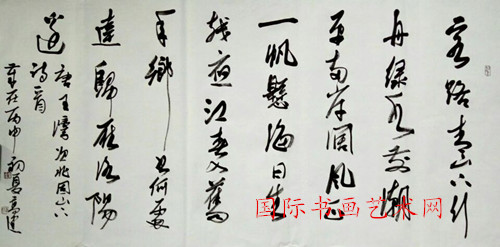 客路青山下行
舟绿水前潮
平两岸阔风正
一帆懸海日生
残夜江春入舊
年鄉書何處
達歸雁洛陽
邊
唐王灣次北固山下
詩一首
歲在丙申初夏
国际书画艺术网